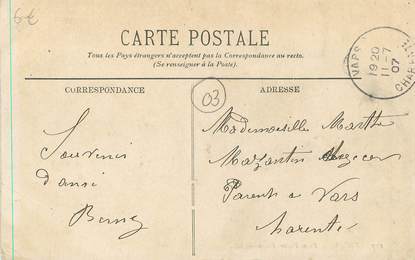 6€
CARTE POSTALE
Tous les Pays étrangers n'acceptent pas la Correspondance au recto.
(Se renseigner à la Poste).
CORRESPONDANCE
03
ADRESSE
VARS
19 20
11-7
07
Souvenir
d'ami
Mademoiselle Marthe
Parents a Vars
Charente